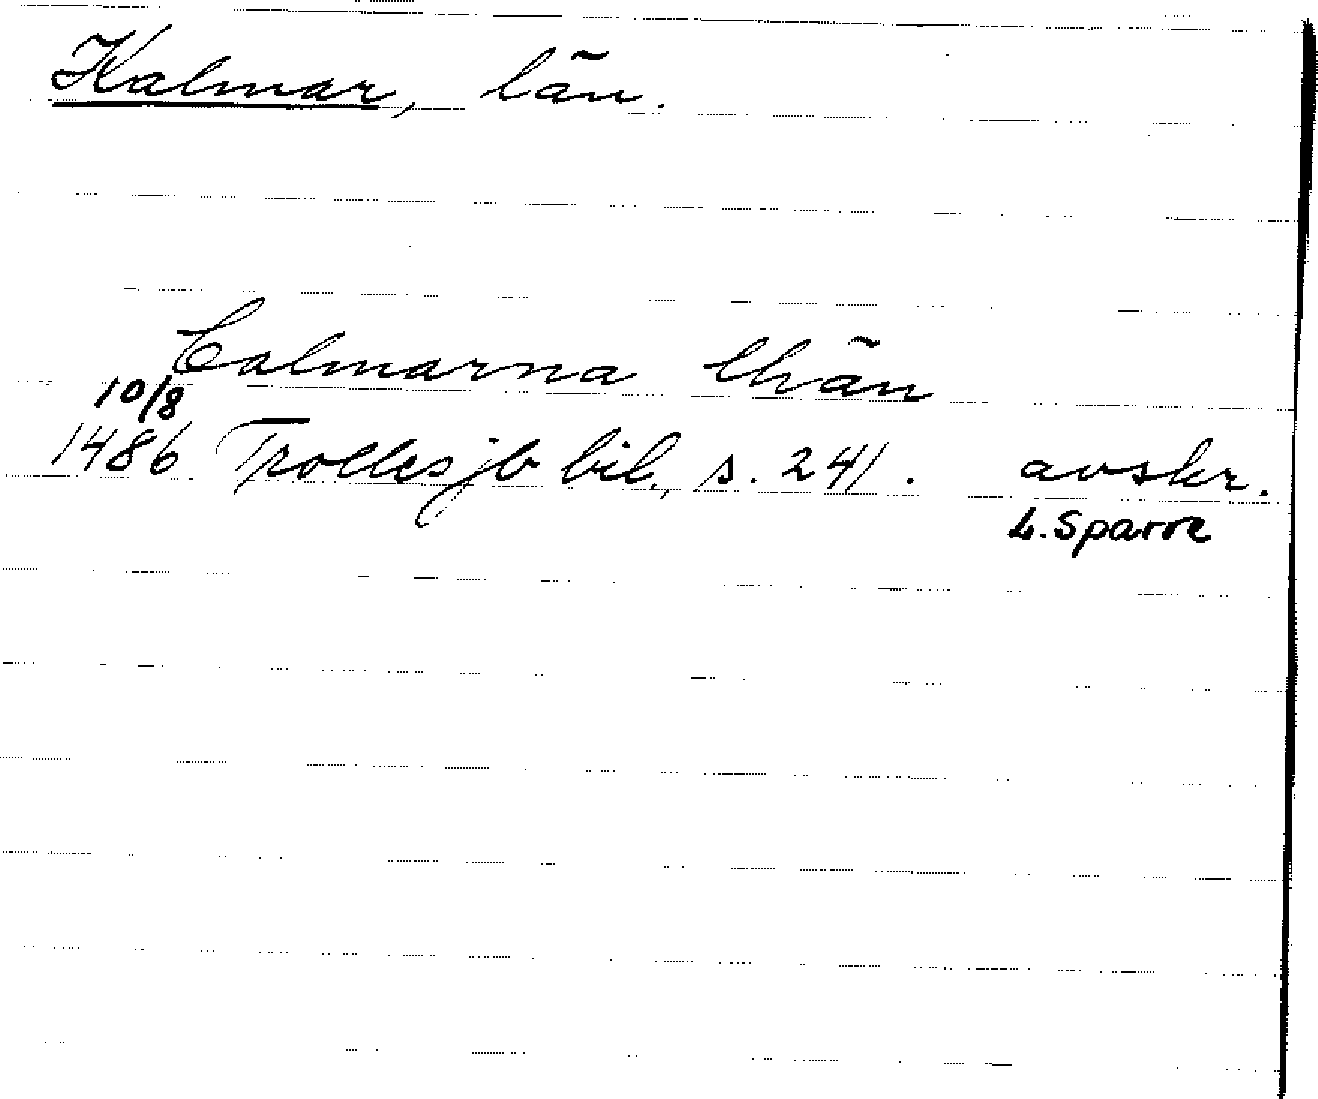 Kalmar, län.
Calmarna lhän
10/8
1486 Trolles jb bil., s. 241. avskr.
L. Sparre